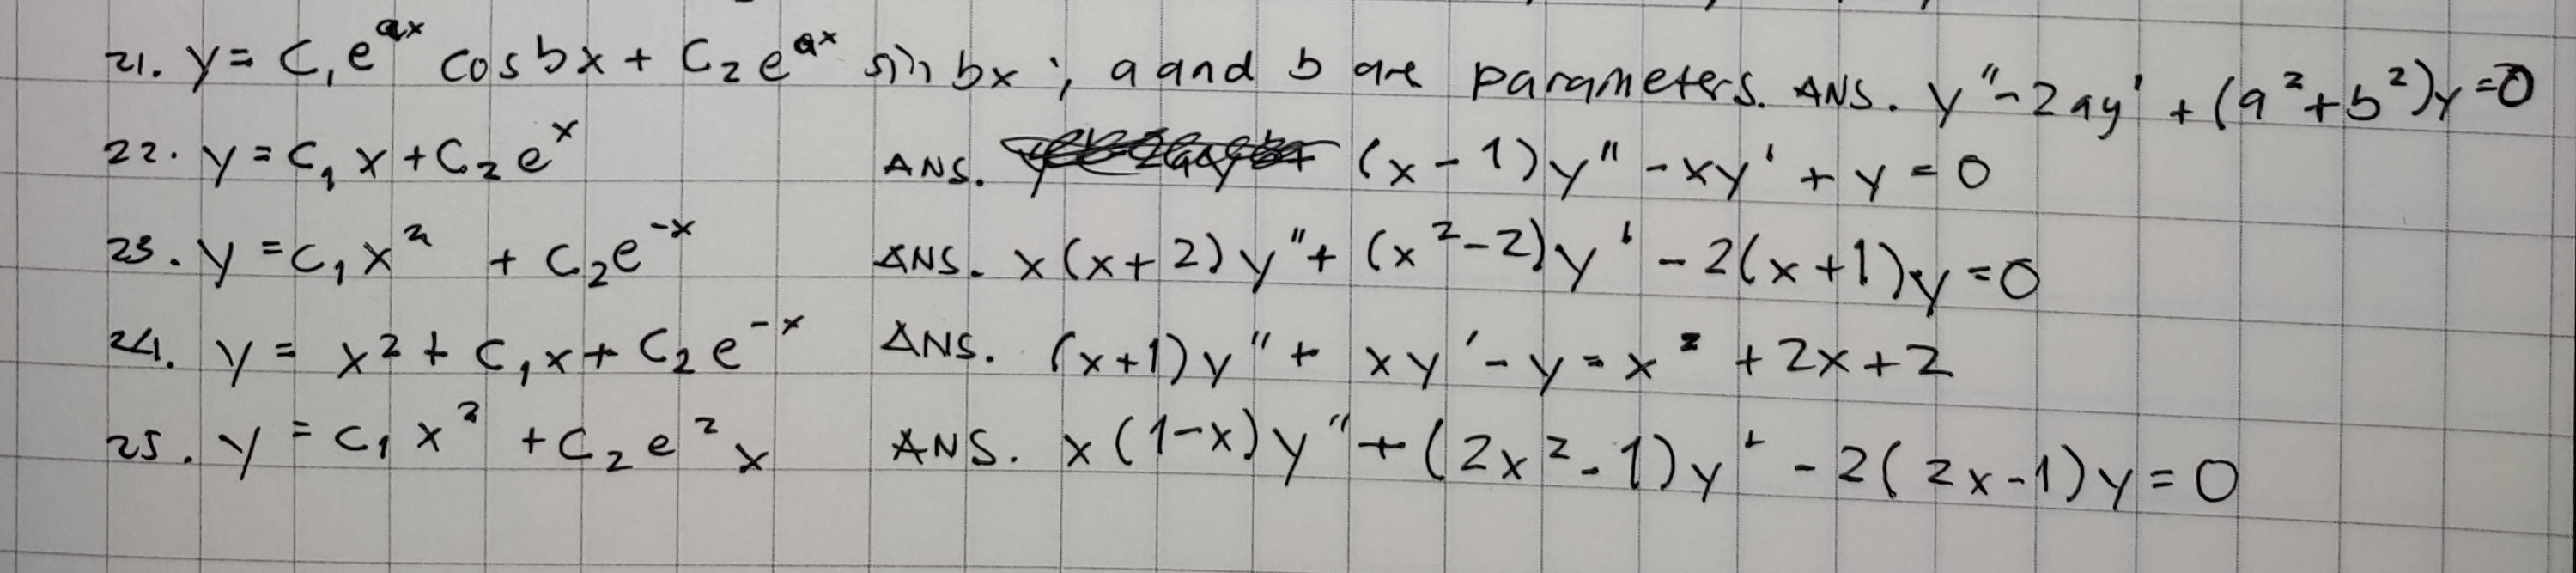 21. y = C₁e^ax cos bx + C₂e^ax sin bx ; a and b are parameters. ANS. y" - 2ay' + (a² + b²)y = 0
22. y = C₁x + C₂e^x ANS. (x - 1)y" - xy' + y = 0
23. y = C₁x² + C₂e^-x ANS. x(x + 2)y" + (x² - 2)y' - 2(x + 1)y = 0
24. y = x² + C₁x + C₂e^-x ANS. (x + 1)y" + xy' - y = x² + 2x + 2
25. y = C₁x² + C₂e²x ANS. x(1 - x)y" + (2x² - 1)y' - 2(2x - 1)y = 0